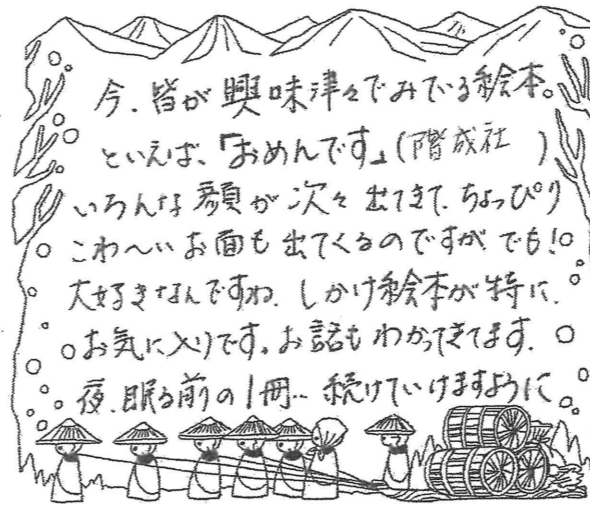 今、皆が興味津々でみている絵本。
といえば、「おめんです」(階成社　)
いろんな顔が次々出てきて、ちょっぴり
こわ〜いお面も出てくるのですが、でも!
大好きなんですね。しかけ絵本が特に、
お気に入りです。お話もわかってきてます。
夜、眠る前の1冊‥続けていけますように